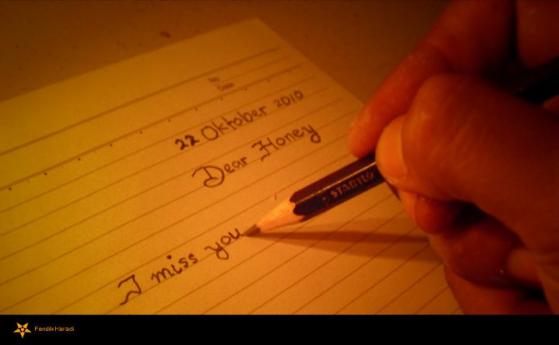 No
Date
22 Oktober 2010
Dear Honey
I miss you
STAEDTLER
Fendik Haradi